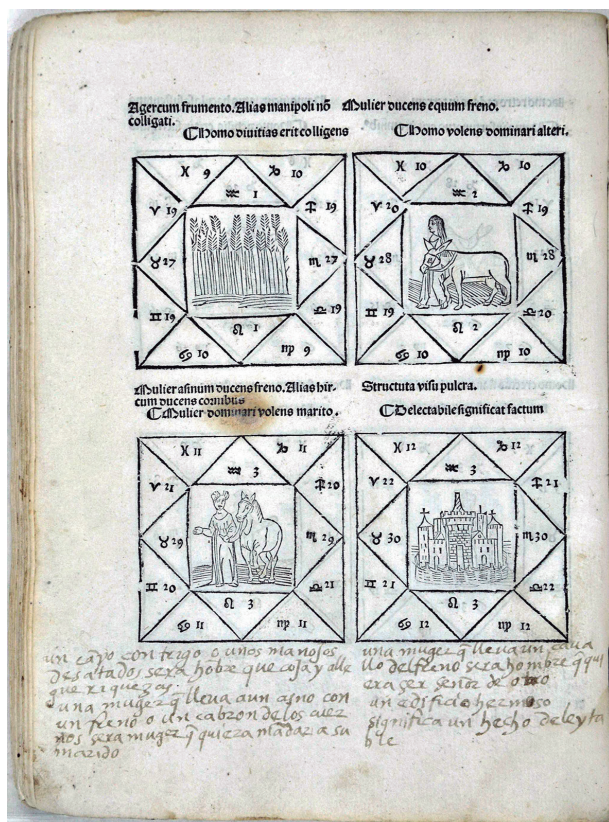 Ager cum frumento. Alias manipoli nō
colligati.
⁋Homo divitias erit colligens
Mulier ducens equum freno.
⁋Homo volens dominari alteri.
♓ 9
♑ 10
♒ 1
♈ 19
♐ 19
♉ 27
♏ 27
♊ 19
♎ 19
♌ 1
♋ 10
♍ 9
♓ 10
♑ 10
♒ 2
♈ 20
♐ 19
♉ 28
♏ 28
♊ 19
♎ 20
♌ 2
♋ 10
♍ 10
Mulier asinum ducens freno. Alias hir-
cum ducens cornibus
⁋Mulier dominari volens marito.
Structuta visu pulcra.
⁋Delectabile significat factum
♓ 11
♑ 11
♒ 3
♈ 21
♐ 20
♉ 29
♏ 29
♊ 20
♎ 21
♌ 3
♋ 11
♍ 11
♓ 12
♑ 12
♒ 3
♈ 22
♐ 21
♉ 30
♏ 30
♊ 21
♎ 22
♌ 3
♋ 11
♍ 12
un cāpo con trigo o unos manojos
desatados sera hōbre que coja y alle
gue riquezas.
una muger q̄ lleva a un asno con
un freno o un cabron de los cuer
nos sera muger q̄ quiera mādar a su
marido
una muger q̄ lleva un cava
llo del freno sera hombre q̄ qui
era ser señor de otro
un edificio hermoso
significa un hecho deleyta
ble